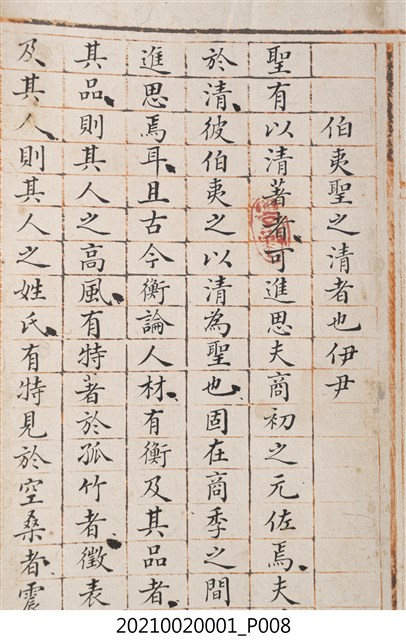 伯夷聖之清者也伊尹
聖有以清著者可進思夫商初之元佐焉夫
於清彼伯夷之以清為聖也固在商季之間
進思焉耳且古今衡論人材有衡及其品者
其品則其人之高風有特著於孤竹者徵表
及其人則其人之姓氏有特見於空桑者震
20210020001_P008